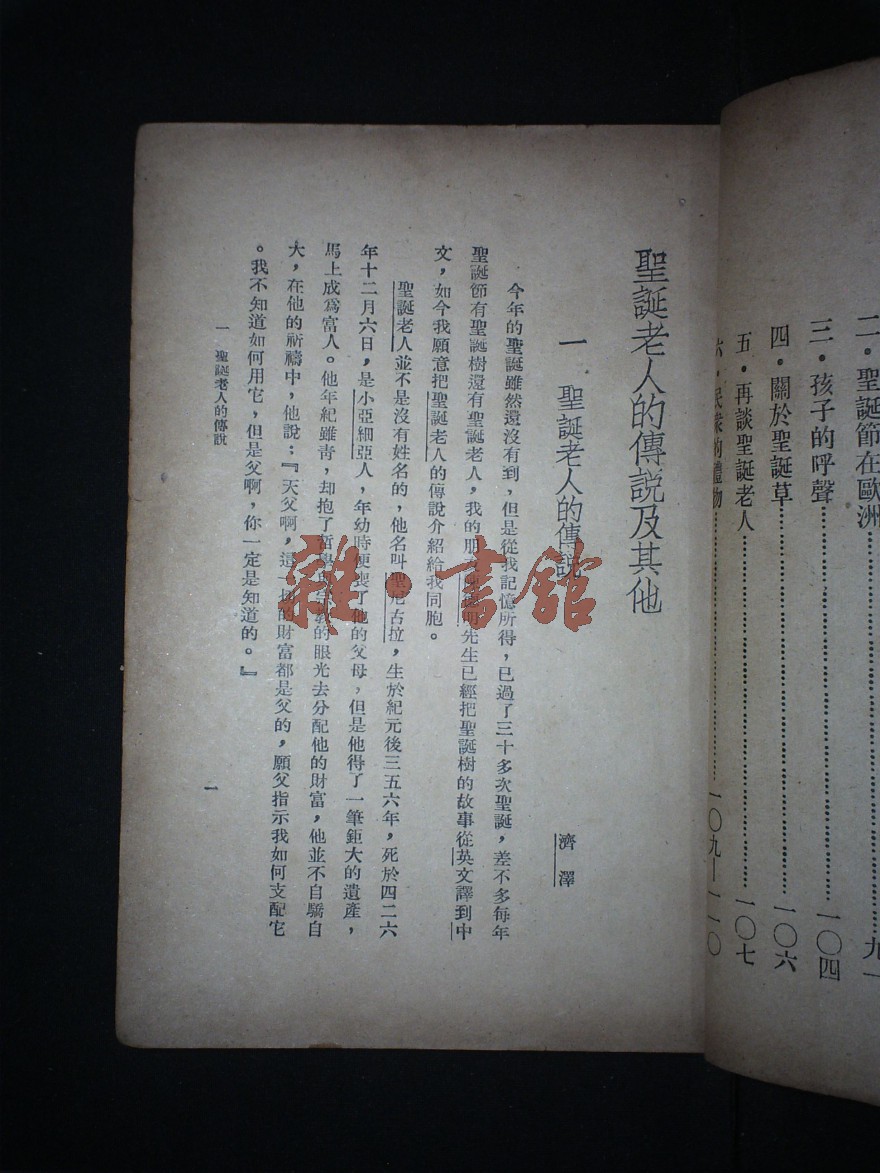 二・聖誕節在歐洲………九一
三・孩子的呼聲………一〇四
四・關於聖誕草………一〇六
五・再談聖誕老人………一〇七
六・民衆的禮物………一〇九—一一〇
聖誕老人的傳説及其他
一 聖誕老人的傳説
濟澤
今年的聖誕雖然還沒有到，但是從我記憶所得，已過了三十多次聖誕，差不多每年
聖誕節有聖誕樹還有聖誕老人，我的朋 先生已經把聖誕樹的故事從英文譯到中
文，如今我願意把聖誕老人的傳說介紹給我同胞。
聖誕老人並不是沒有姓名的，他名叫聖尼古拉，生於紀元後三五六年，死於四二六
年十二月六日，是小亞細亞人，年幼時便喪了他的父母，但是他得了一筆鉅大的遺產，
馬上成爲富人。他年紀雖靑，却抱了哲學 的眼光去分配他的財富，他並不自驕自
大，在他的祈禱中，他說：『天父啊，這一切的財富都是父的，願父指示我如何支配它
。我不知道如何用它，但是父啊，你一定是知道的。』
一 聖誕老人的傳說
一
雜・書館